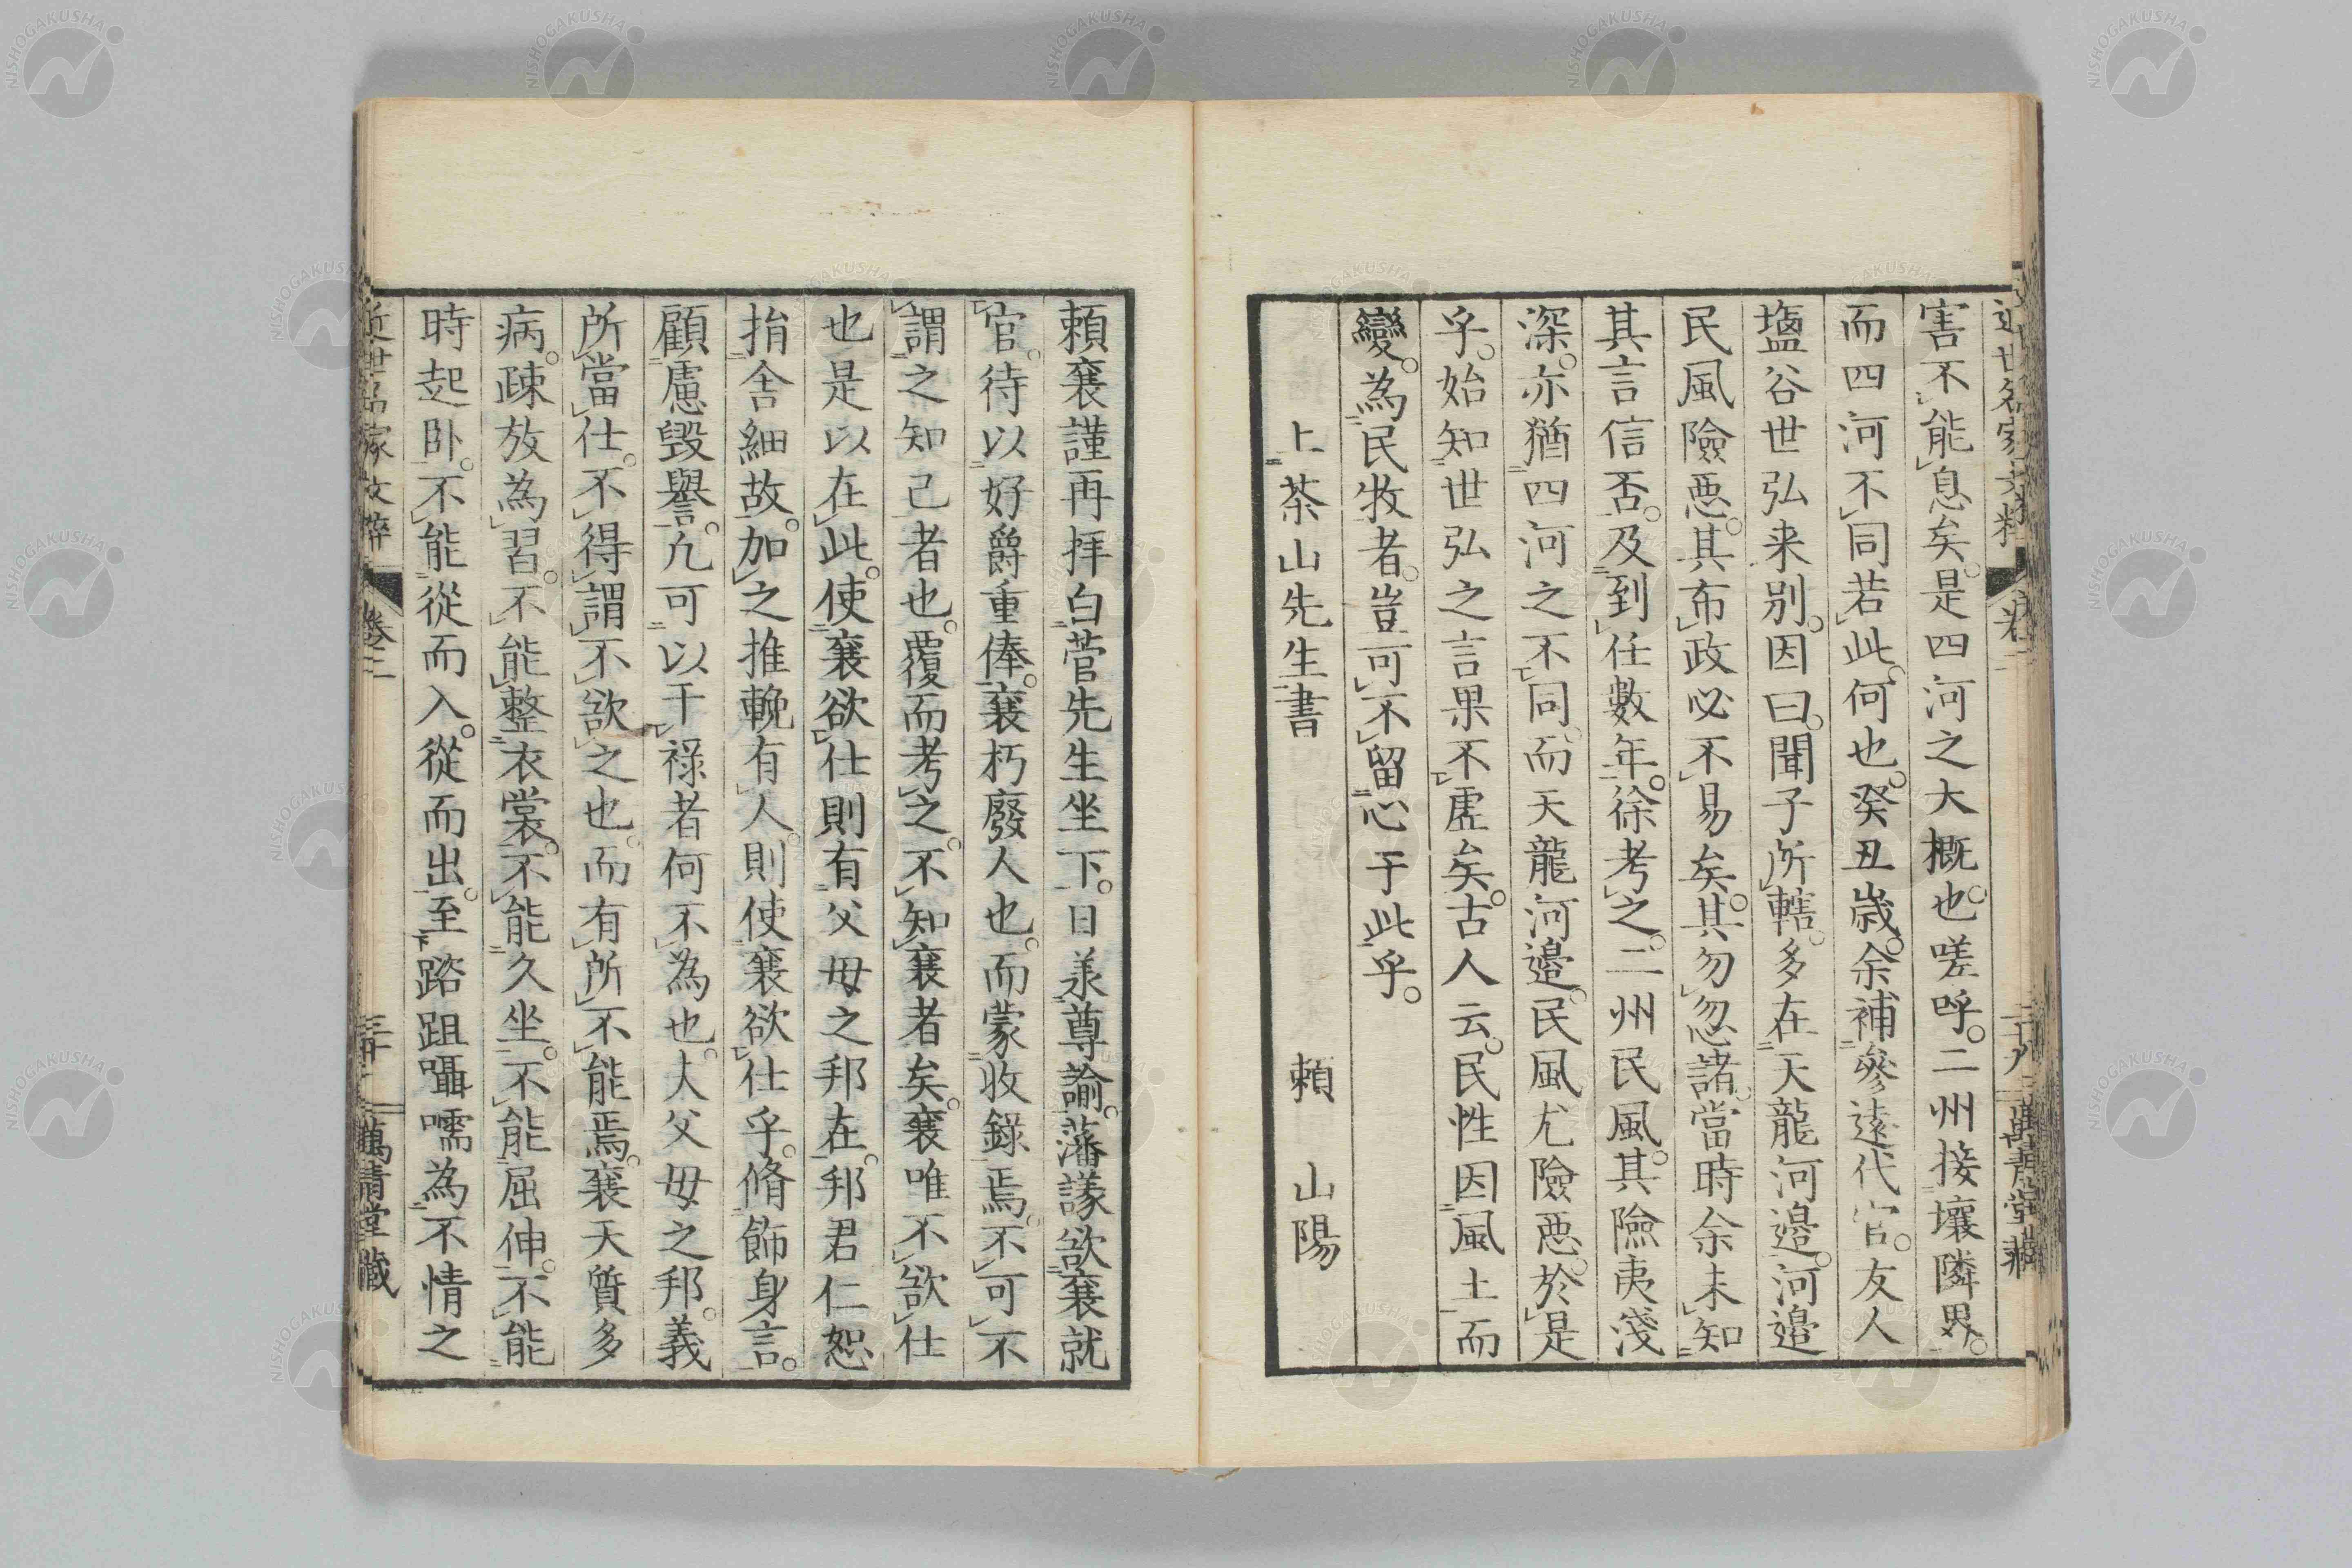 害不能息矣。是四河之大概也。嗟呼。二州接壤隣界。
而四河不同若此。何也。癸丑歲。余補參遠代官。友人
塩谷世弘来別。因曰。聞子所轄。多在天龍河邉。河邉
民風險惡。其布政必不易矣。其勿忽諸。當時余未知
其言信否。及到任數年。徐考之。二州民風。其險夷淺
深。亦猶四河之不同。而天龍河邉。民風尤險惡。於是
乎。始知世弘之言果不虛矣。古人云。民性因風土而
變。為民牧者。豈可不留心于此乎。
上茶山先生書　頼　山陽
頼襄謹再拝白菅先生坐下。日羕尊諭。藩議欲襄就
官。待以好爵重俸。襄朽廢人也。而蒙收錄焉。不可不
謂之知己者也。覆而考之。不知襄者矣。襄唯不欲仕
也是以在此。使襄欲仕則有父母之邦在。邦君仁恕
捐舍細故。加之推輓有人。則使襄欲仕乎。脩飾身言。
顧慮毀譽。凢可以干祿者何不為也。大父母之邦。義
所當仕。不得謂不欲之也。而有所不能焉。襄天質多
病。疎放為習。不能整衣裳。不能久坐。不能屈伸。不能
時起卧。不能從而入。從而出。至踏跙囁嚅為不情之
近世名家文粹　卷二　三十　萬青堂藏